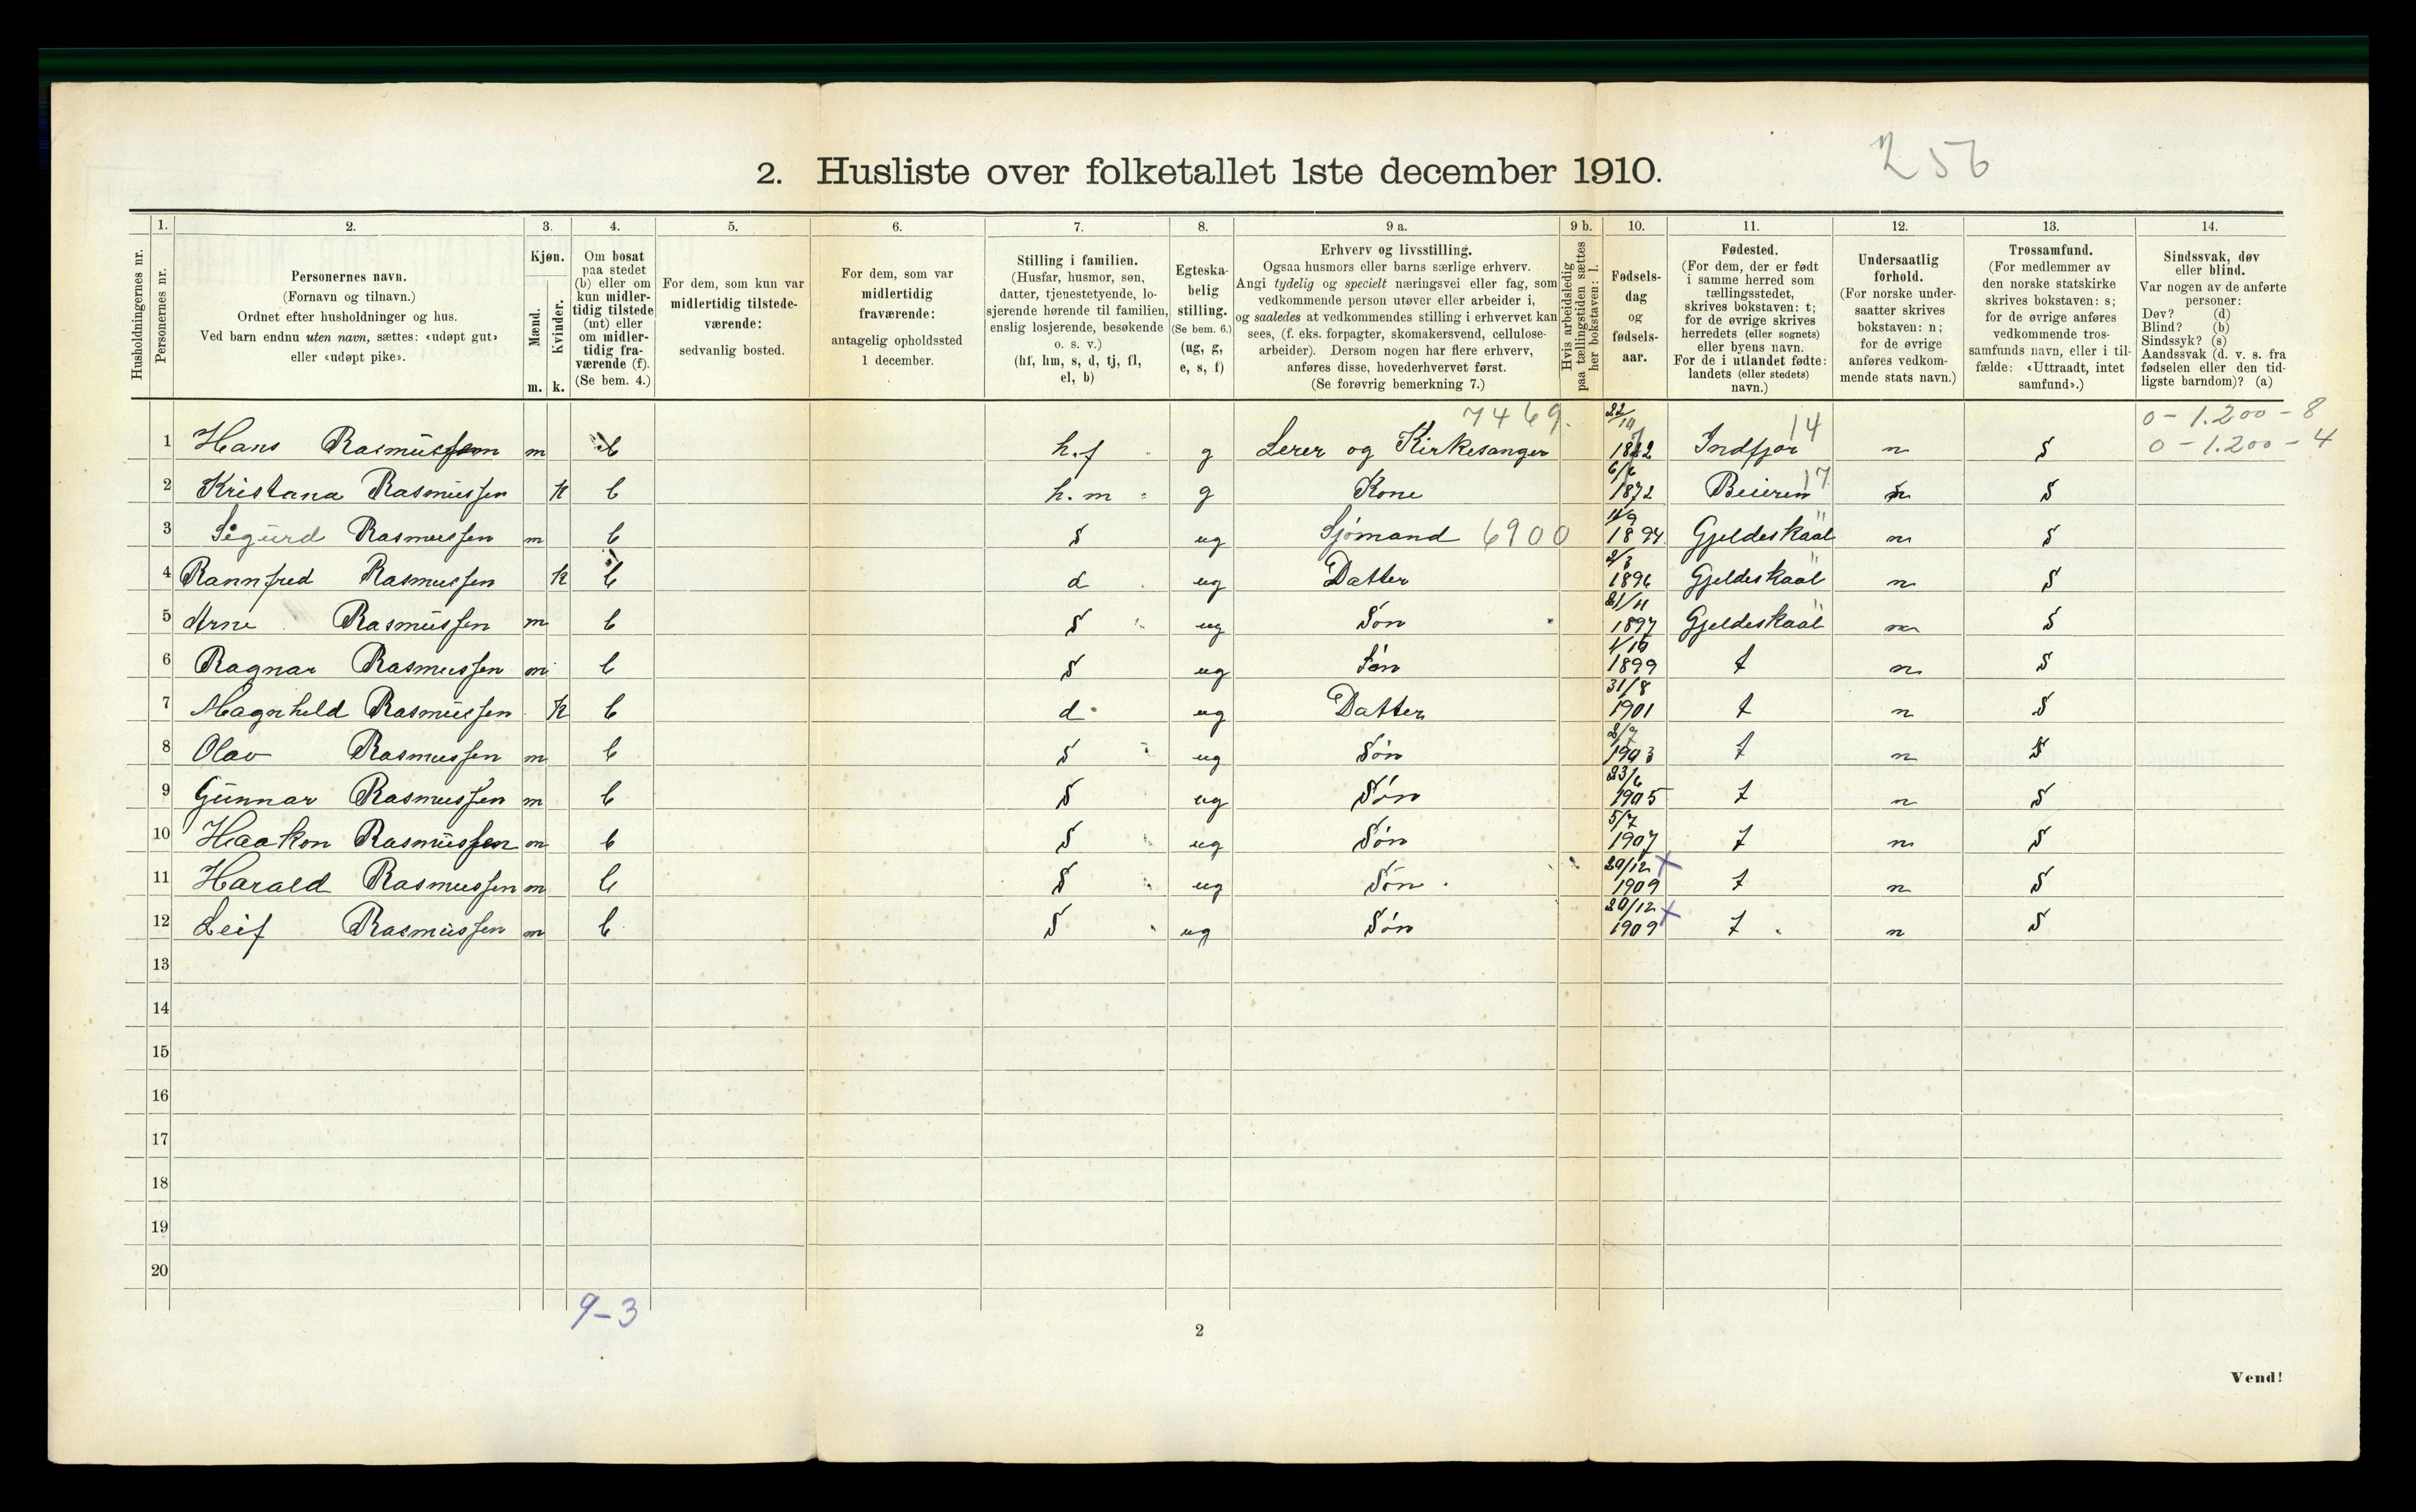 256
2. Husliste over folketallet 1ste december 1910.
Husholdningernes nr.
1. Personernes nr.
2. Personernes navn. (Fornavn og tilnavn.) Ordnet efter husholdninger og hus. Ved barn endnu uten navn, sættes: «udøpt gut» eller «udøpt pike».
3. Kjøn. Mænd. m. Kvinder. k.
4. Om bosat paa stedet (b) eller om kun midlertidig tilstede (mt) eller om midlertidig fraværende (f). (Se bem. 4.)
5. For dem, som kun var midlertidig tilstedeværende: sedvanlig bosted.
6. For dem, som var midlertidig fraværende: antagelig opholdssted 1 december.
7. Stilling i familien. (Husfar, husmor, søn, datter, tjenestetyende, losjerende hørende til familien, enslig losjerende, besøkende o. s. v.) (hf, hm, s, d, tj, fl, el, b)
8. Egteskabelig stilling. (Se bem. 6.) (ug, g, e, s, f)
9 a. Erhverv og livsstilling. Ogsaa husmors eller barns særlige erhverv. Angi tydelig og specielt næringsvei eller fag, som vedkommende person utøver eller arbeider i, og saaledes at vedkommendes stilling i erhvervet kan sees, (f. eks. forpagter, skomakersvend, cellulosearbeider). Dersom nogen har flere erhverv, anføres disse, hovederhvervet først. (Se forøvrig bemerkning 7.)
9 b. Hvis arbeidsledig paa tællingstiden sættes her bokstaven: l.
10. Fødselsdag og fødselsaar.
11. Fødested. (For dem, der er født i samme herred som tællingsstedet, skrives bokstaven: t; for de øvrige skrives herredets (eller sognets) eller byens navn. For de i utlandet fødte: landets (eller stedets) navn.)
12. Undersaatlig forhold. (For norske undersaatter skrives bokstaven: n; for de øvrige anføres vedkommende stats navn.)
13. Trossamfund. (For medlemmer av den norske statskirke skrives bokstaven: s; for de øvrige anføres vedkommende trossamfunds navn, eller i tilfælde: «Uttraadt, intet samfund».)
14. Sindssvak, døv eller blind. Var nogen av de anførte personer: Døv? (d) Blind? (b) Sindssyk? (s) Aandssvak (d. v. s. fra fødselen eller den tidligste barndom)? (a)
7469. 14 0 - 1.200 - 8
1 Hans Rasmussen m b h.f g Lerer og Kirkesanger Indfjor n S 0 - 1.200 - 4
2 Kristana Rasmussen k b h.m g Kone 6/6 1872 Beieren 17 n S
3 Sigurd Rasmussen m b S ug Sjømand 6900 1894 Gjeldeskaal n S
4 Rannfred Rasmussen k b d ug Datter 2/3 1896 Gjeldeskaal n S
5 Arne Rasmussen m b S ug Søn 21/11 1897 Gjeldeskaal n S
6 Ragnar Rasmussen m b S ug Søn 1/10 1899 t n S
7 Magnhild Rasmussen k b d ug Datter 31/8 1901 t n S
8 Olav Rasmussen m b S ug Søn 2/7 1903 t n S
9 Gunnar Rasmussen m b S ug Søn 23/6 1905 t n S
10 Haakon Rasmussen m b S ug Søn 5/7 1907 t n S
11 Harald Rasmussen m b S ug Søn 20/12 1909 t n S
12 Leif Rasmussen m b S ug Søn 20/12 1909 t n S
13
14
15
16
17
18
19
20
9-3
2
Vend!